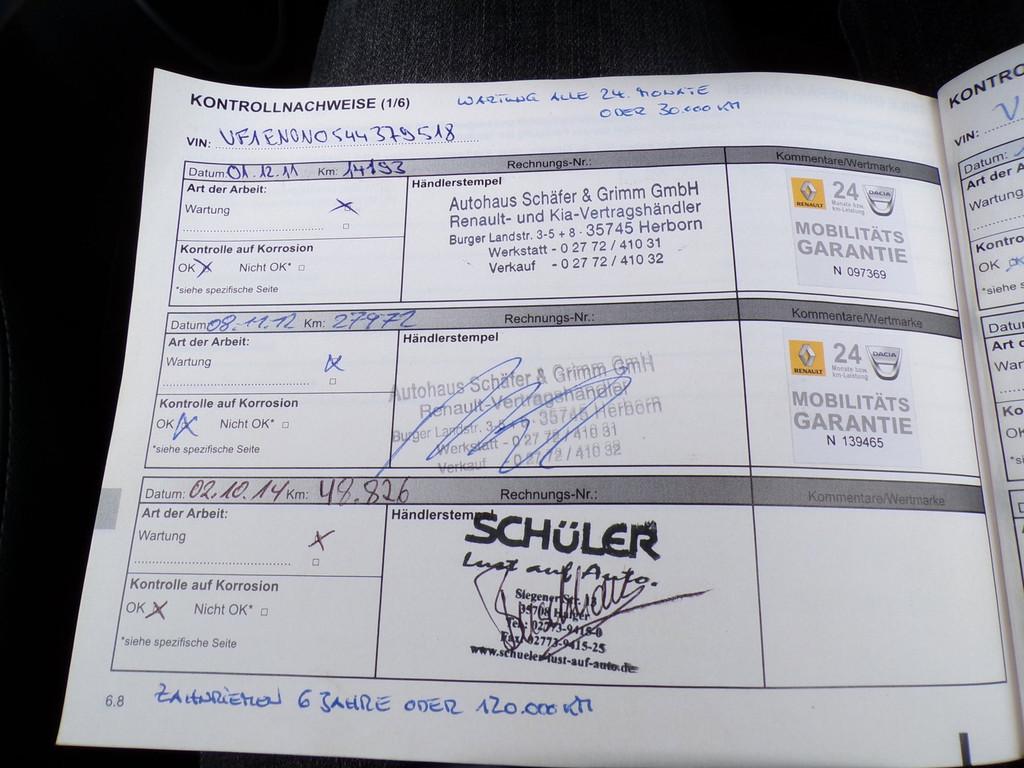 KONTROLLNACHWEISE (1/6)
WARTUNG ALLE 24 MONATE
ODER 30.000 KM
VIN: VF1ENON0544379518
Datum: 01.12.11 Km: 14193 Rechnungs-Nr.: Kommentare/Wertmarke
Art der Arbeit:
Wartung
Kontrolle auf Korrosion
OK Nicht OK*
*siehe spezifische Seite
Händlerstempel
Autohaus Schäfer & Grimm GmbH
Renault- und Kia-Vertragshändler
Burger Landstr. 3-5 + 8 · 35745 Herborn
Werkstatt - 0 27 72 / 410 31
Verkauf - 0 27 72 / 410 32
RENAULT 24 DACIA
Monate bzw.
km-Leistung
MOBILITÄTS
GARANTIE
N 097369
Datum: 08.11.12 Km: 27972 Rechnungs-Nr.: Kommentare/Wertmarke
Art der Arbeit:
Wartung
Kontrolle auf Korrosion
OK Nicht OK*
*siehe spezifische Seite
Händlerstempel
Autohaus Schäfer & Grimm GmbH
Renault-Vertragshändler
Burger Landstr. 35745 Herborn
Werkstatt - 0 27 72 / 410 31
Verkauf - 0 27 72 / 410 32
RENAULT 24 DACIA
Monate bzw.
km-Leistung
MOBILITÄTS
GARANTIE
N 139465
Datum: 02.10.14 Km: 48.826 Rechnungs-Nr.: Kommentare/Wertmarke
Art der Arbeit:
Wartung
Kontrolle auf Korrosion
OK Nicht OK*
*siehe spezifische Seite
Händlerstempel
SCHÜLER
Lust auf Auto.
Siegener Str.
35708 Haiger
Tel: 02773-9415-0
Fax: 02773-9415-25
www.schueler-lust-auf-auto.de
6.8
ZAHNRIEMEN 6 JAHRE ODER 120.000 KM
KONTRO
VIN: V
Datum:
Art der A
Wartung
Kontro
OK
*siehe s
Datu
Art d
War
Ko
OK